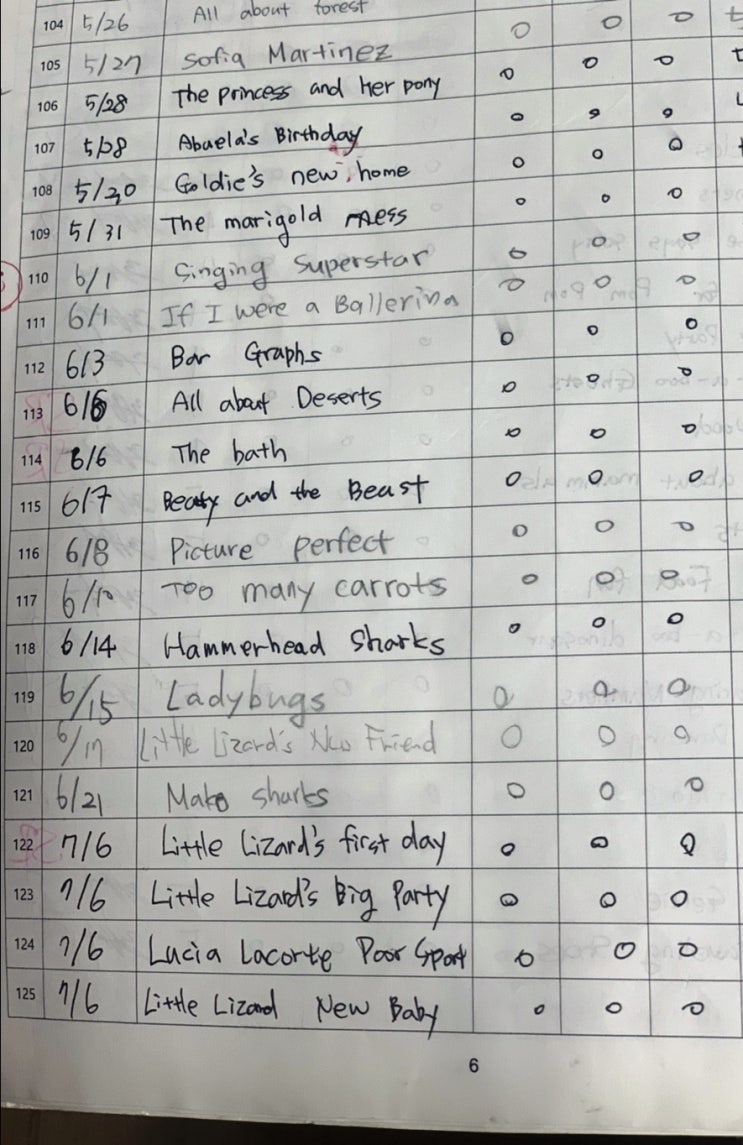 104 5/26 All about forest o o o
105 5/27 Sofia Martinez o o o
106 5/28 The princess and her pony o o o
107 5/28 Abuela's Birthday o o o
108 5/30 Goldie's new home o o o
109 5/31 The marigold mess o o o
110 6/1 Singing Superstar o o o
111 6/1 If I were a Ballerina o o o
112 6/3 Bar Graphs o o o
113 6/6 All about Deserts o o o
114 6/6 The bath o o o
115 6/7 Beaty and the Beast o o o
116 6/8 Picture perfect o o o
117 6/10 Too many carrots o o o
118 6/14 Hammerhead Sharks o o o
119 6/15 Ladybugs o o o
120 6/17 Little Lizard's New Friend o o o
121 6/21 Mako sharks o o o
122 7/6 Little Lizard's first day o o o
123 7/6 Little Lizard's Big Party o o o
124 7/6 Lucia Lacorte Poor Sport o o o
125 7/6 Little Lizard New Baby o o o
6